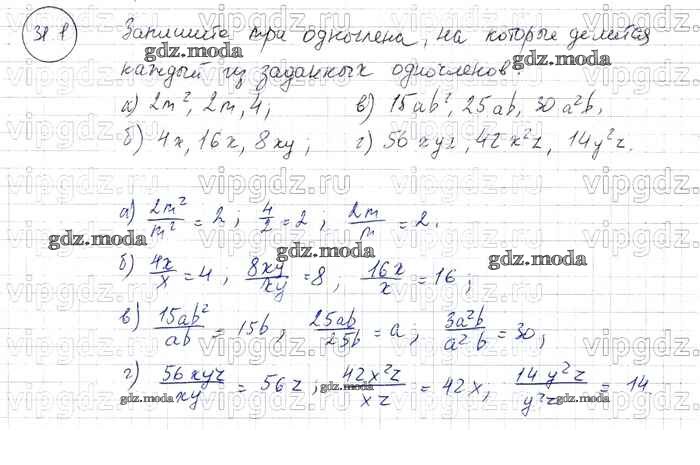 31.1 Запишите три одночлена, на которые делится
каждый из заданных одночленов:
а) 2m², 2m, 4; в) 15ab², 25ab, 30a²b,
б) 4x, 16x, 8xy; г) 56xyz, 42x²z, 14y²z.
а) 2m²/m² = 2; 4/2 = 2, 2m/m = 2.
б) 4x/x = 4, 8xy/xy = 8, 16x/x = 16;
в) 15ab²/ab = 15b, 25ab/25b = a; 3a²b/a²b = 30;
г) 56xyz/xy = 56z; 42x²z/xz = 42x, 14y²z/y²z = 14
gdz.moda
vipgdz.ru